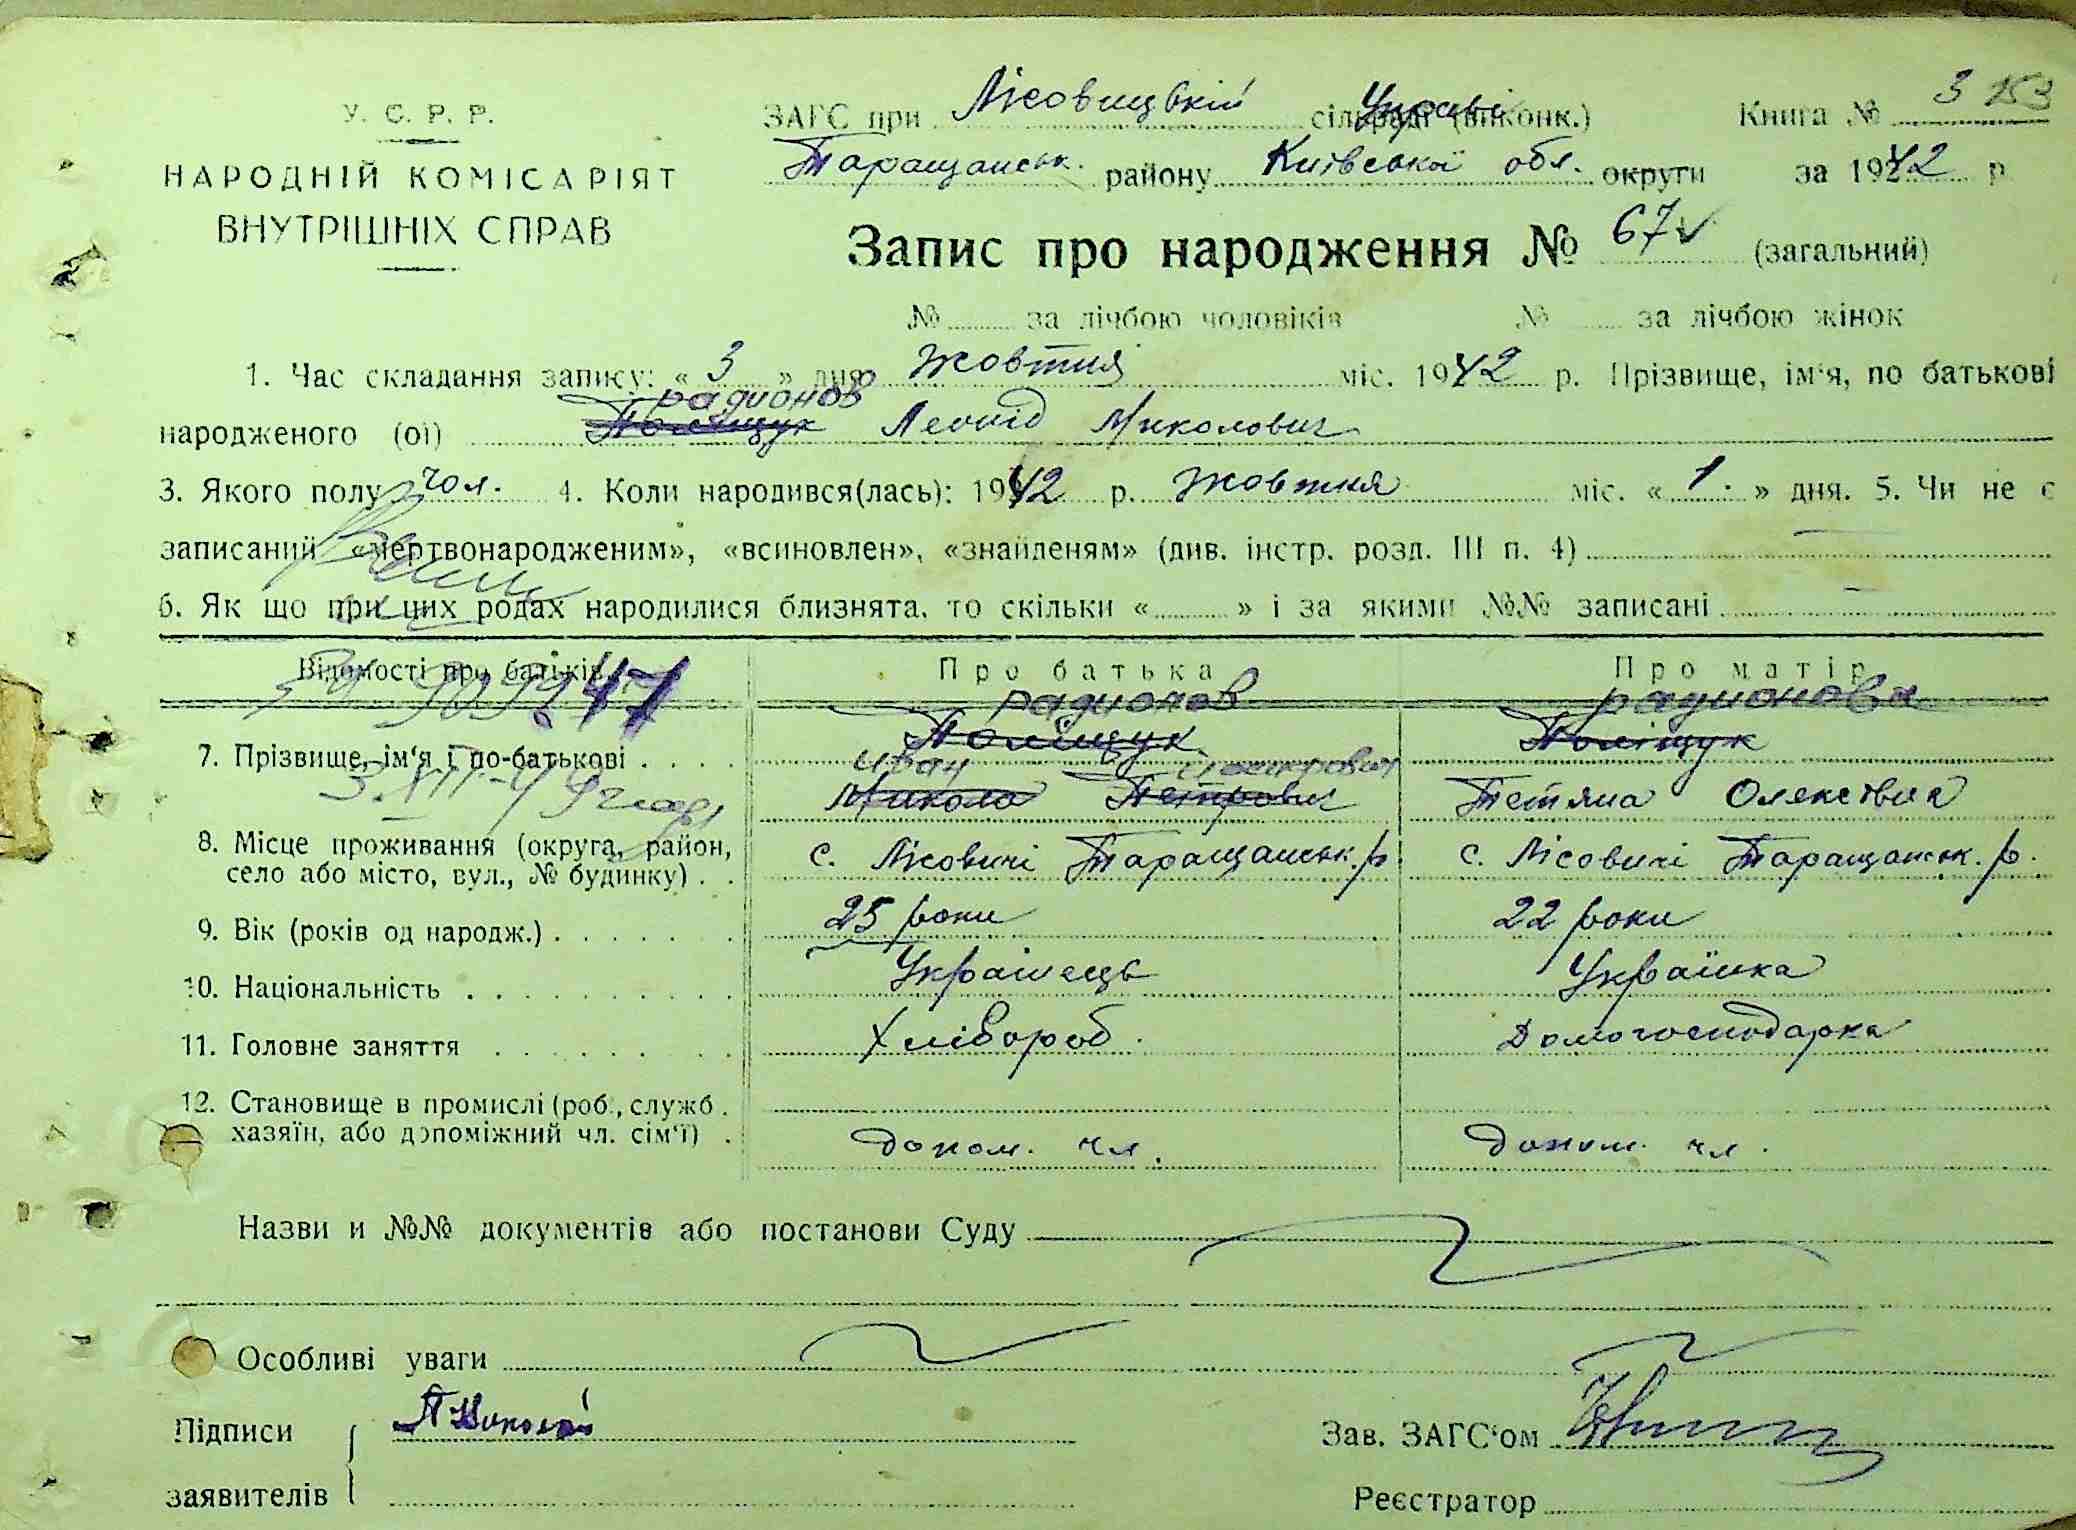 У. С. Р. Р.
НАРОДНІЙ КОМІСАРІЯТ
ВНУТРІШНІХ СПРАВ
ЗАГС при Лісовицькій сільраді (виконк.) Управі Книга № 3 153
Таращанськ. району Київської обл. округи за 1942 р.
Запис про народження № 67 (загальний)
№ за лічбою чоловіків № за лічбою жінок
1. Час складання запису: « 3 » дня жовтня міс. 1942 р. Прізвище, ім'я, по батькові
радионов
народженого (ої) Поліщук Леонід Миколович
3. Якого полу чол. 4. Коли народився(лась): 1942 р. жовтня міс. « 1. » дня. 5. Чи не є
записаний «мертвонародженим», «всиновлен», «знайденям» (див. інстр. розд. III п. 4)
6. Як що при цих родах народилися близнята, то скільки « » і за якими №№ записані
Відомості про батьків Про батька Про матір
радионов радионова
Поліщук Поліщук
7. Прізвище, ім'я і по-батькові
Иван
Микола Петрович Тетяна Олексівна
8. Місце проживання (округа, район, село або місто, вул., № будинку) с. Лісовичі Таращанськ. р. с. Лісовичі Таращанськ. р.
9. Вік (років од народж.) 25 роки 22 роки
10. Національність Українець Українка
11. Головне заняття Хлібороб. Домогосподарка
12. Становище в промислі (роб., служб.
хазяїн, або допоміжний чл. сім'ї) допом. чл. допом. чл.
Назви и №№ документів або постанови Суду
Особливі уваги
Підписи
заявителів
Зав. ЗАГС'ом
Реєстратор